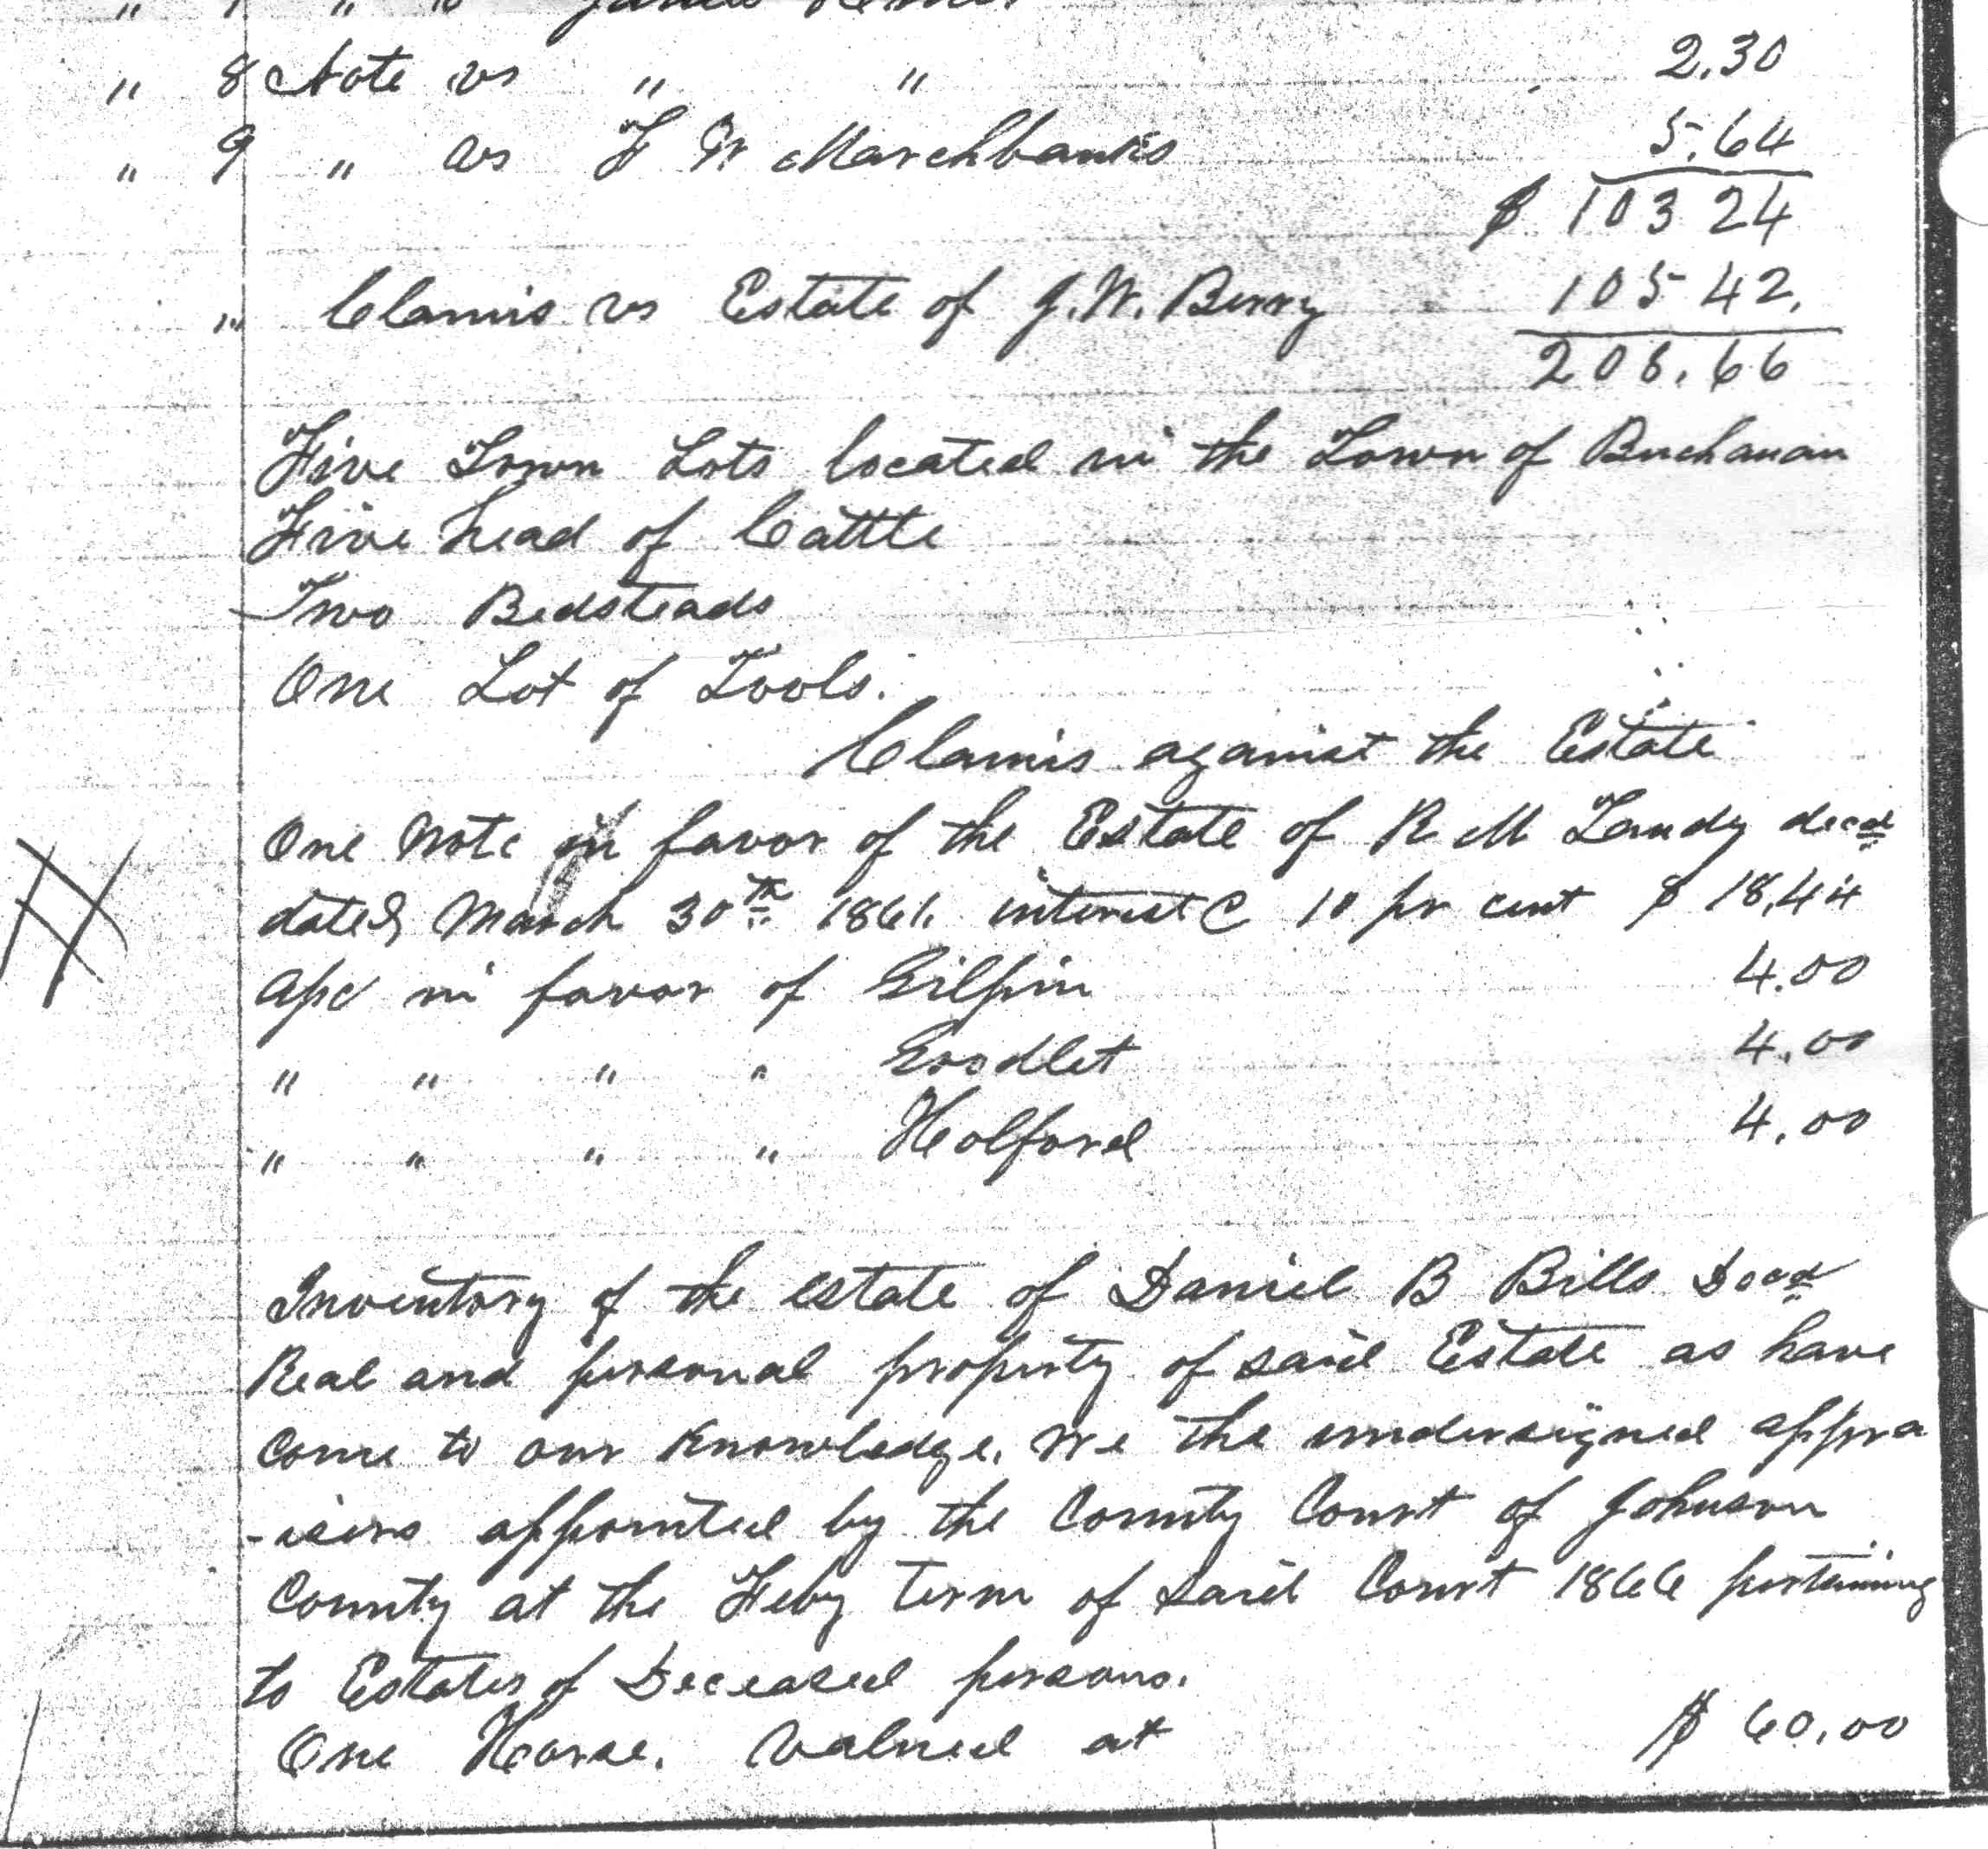 " 8 Note vs " " 2.30
" 9 " vs F W Marchbanks 5.64
$ 103 24
" Claims vs Estate of J.W. Berry 105 42.
208.66
Five Town Lots located in the Town of Buchanan
Five head of Cattle
Two Bedsteads
One Lot of Tools.
Claims against the Estate
One Note in favor of the Estate of R M Tandy decd
dated March 30th 1861. interest @ 10 pr cent $ 18.44
a/c in favor of Gilpin 4.00
" " " " Goodlet 4.00
" " " " Holford 4.00
Inventory of the estate of Daniel B Bills Decd
Real and personal property of said Estate as have
come to our knowledge. We the undersigned appra
-isers appointed by the County Court of Johnson
County at the Feby Term of said Court 1866 pertaining
to Estates of Deceased persons.
One Horse. valued at $ 60.00